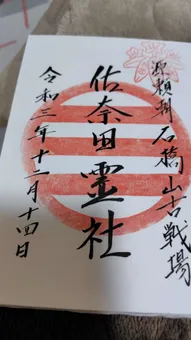 源頼朝石橋山古戦場
佐奈田霊社
令和三年十二月十四日